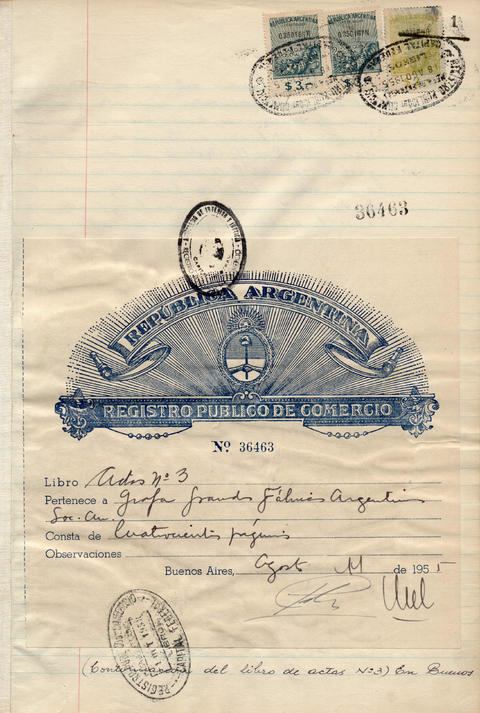 REPUBLICA ARGENTINA
REPUBLICA ARGENTINA
1
$3
$
CAPITAL FEDERAL
36463
REPÚBLICA ARGENTINA
REGISTRO PUBLICO DE COMERCIO
Nº 36463
Libro Actas Nº 3
Pertenece a Grafa Grands Fábricas Argentinas
Soc. An.
Consta de Cuatrocientas páginas
Observaciones
Buenos Aires, Agosto 11 de 1955
CAPITAL FEDERAL
(Continuación del libro de actas Nº 3) En Buenos